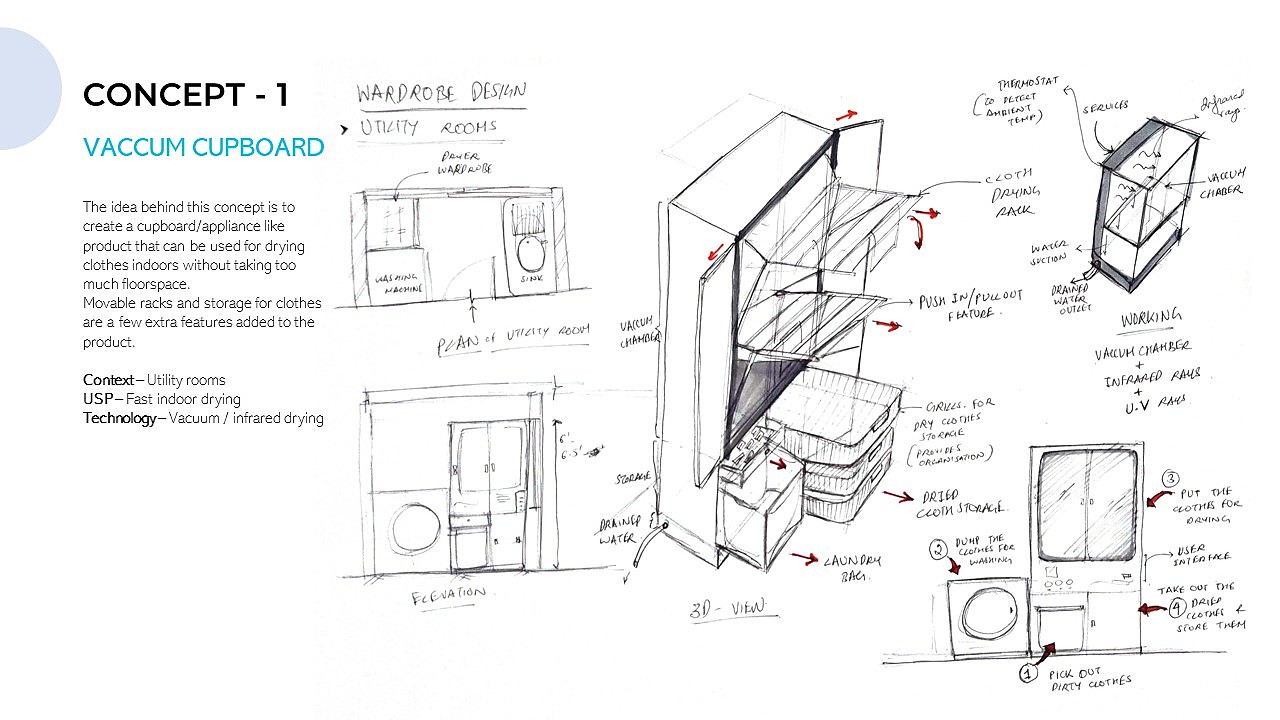 CONCEPT - 1
VACCUM CUPBOARD
The idea behind this concept is to
create a cupboard/appliance like
product that can be used for drying
clothes indoors without taking too
much floorspace.
Movable racks and storage for clothes
are a few extra features added to the
product.
Context – Utility rooms
USP – Fast indoor drying
Technology – Vacuum / infrared drying
WARDROBE DESIGN
UTILITY ROOMS
DRYER
WARDROBE
WASHING
MACHINE
SINK
PLAN OF UTILITY ROOM
6' -
6.5'
ELEVATION
VACCUM
CHAMBER
STORAGE
DRAINED
WATER
CLOTH
DRYING
RACK
PUSH IN/PULL OUT
FEATURE.
GRILLS FOR
DRY CLOTHES
STORAGE
(PROVIDES
ORGANISATION)
DRIED
CLOTH STORAGE.
LAUNDRY
BAG.
3D - VIEW
THERMOSTAT
(TO DETECT
AMBIENT
TEMP)
SERVICES
Infrared
rays.
VACCUM
CHABER
WATER
SUCTION
DRAINED
WATER
OUTLET
WORKING
VACCUM CHAMBER
+
INFRARED RAYS
+
U.V RAYS.
3
PUT THE
CLOTHES FOR
DRYING
2
DUMP THE
CLOTHES FOR
WASHING
USER
INTERFACE
TAKE OUT THE
4 DRIED
CLOTHES &
STORE THEM
1
PICK OUT
DIRTY CLOTHES